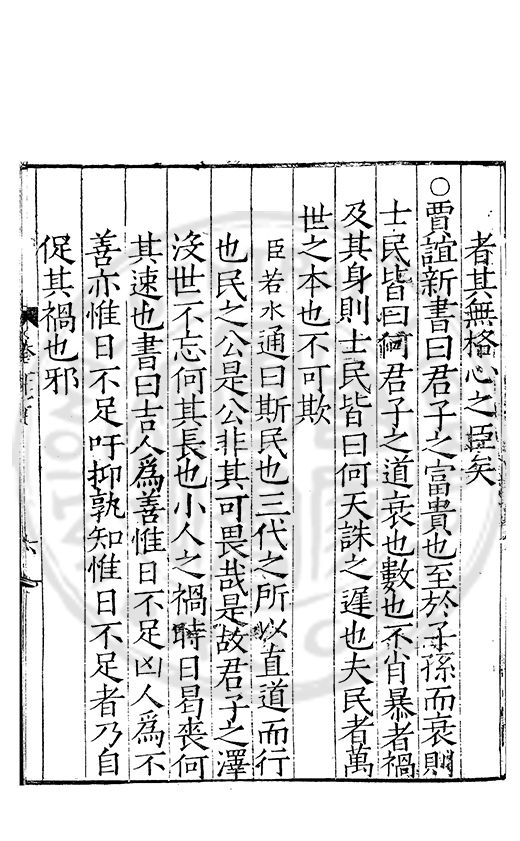 者其無格心之臣矣
○賈誼新書曰君子之富貴也至於子孫而衰則
士民皆曰何君子之道衰也數也不肖暴者禍
及其身則士民皆曰何天誅之遲也夫民者萬
世之本也不可欺
臣若水通曰斯民也三代之所以直道而行
也民之公是公非其可畏哉是故君子之澤
沒世不忘何其長也小人之禍時日曷喪何
其速也書曰吉人爲善惟日不足凶人爲不
善亦惟日不足吁抑孰知惟日不足者乃自
促其禍也邪